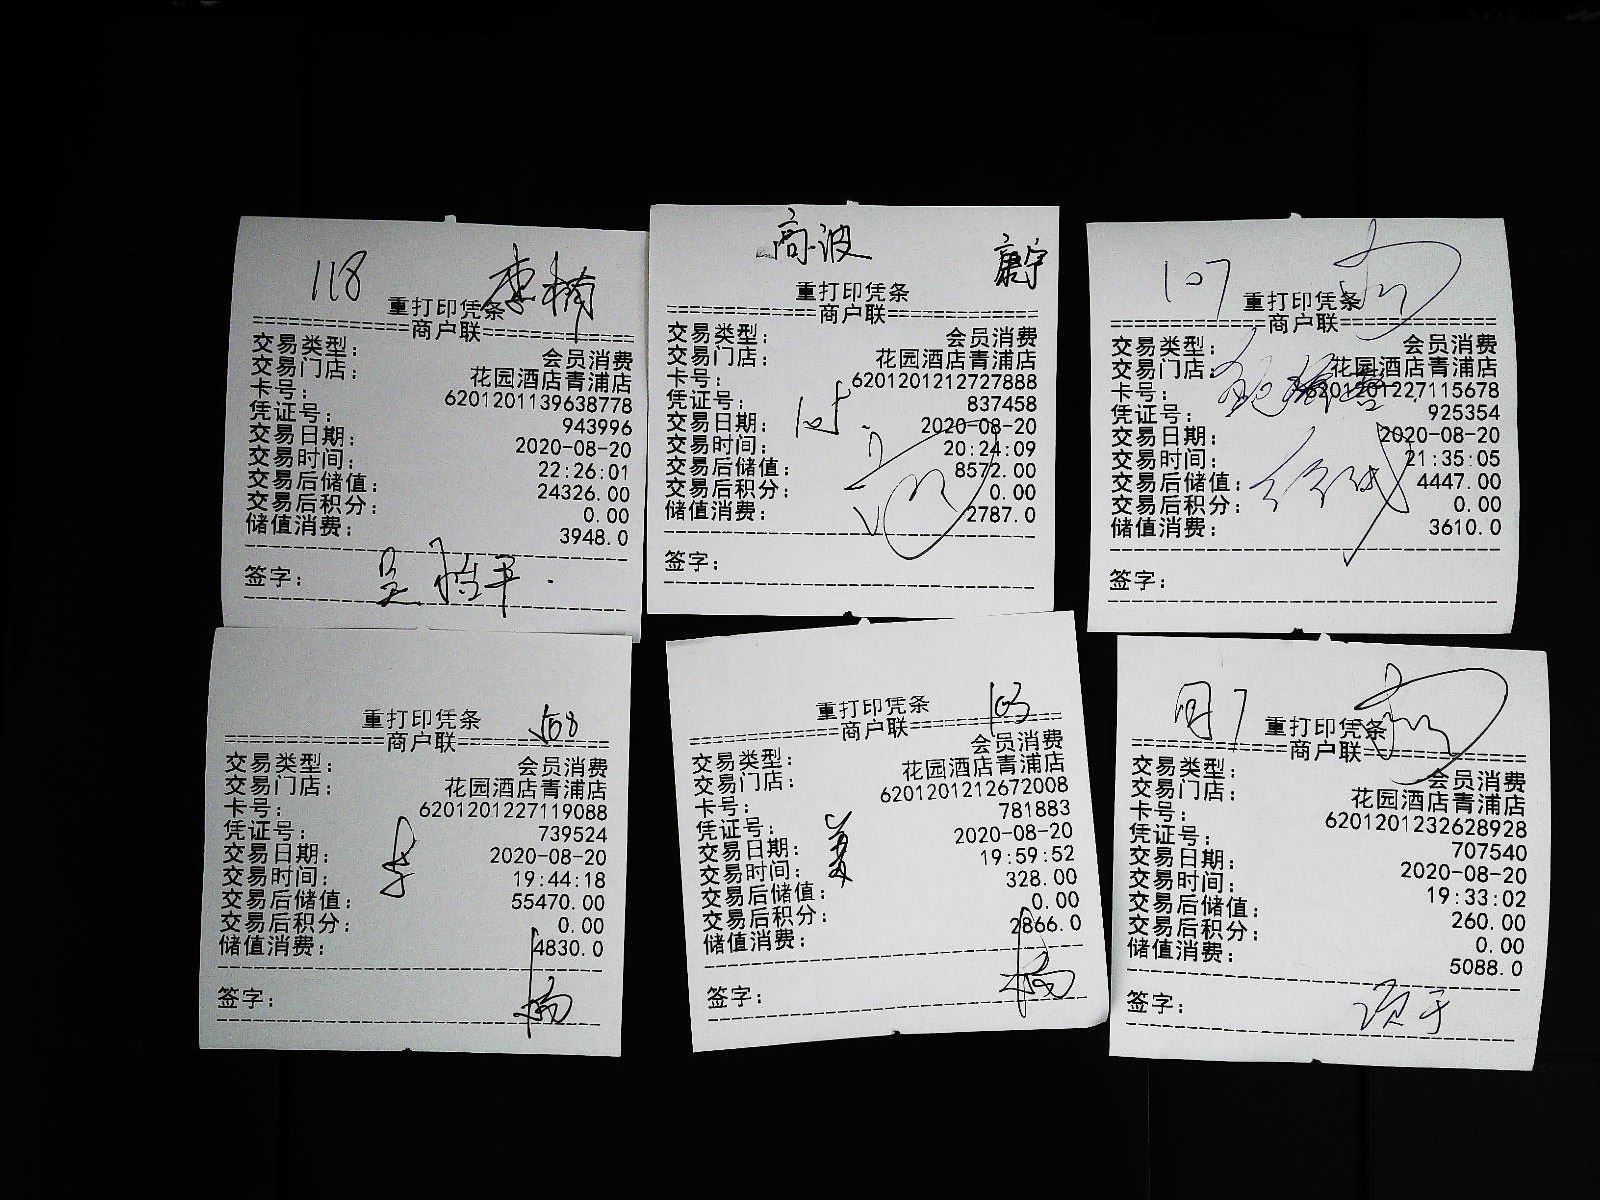 118 李楠
重打印凭条
商户联
交易类型： 会员消费
交易门店： 花园酒店青浦店
卡号： 6201201139638778
凭证号： 943996
交易日期： 2020-08-20
交易时间： 22:26:01
交易后储值： 24326.00
交易后积分： 0.00
储值消费： 3948.0
签字：
高波 康宁
重打印凭条
商户联
交易类型： 会员消费
交易门店： 花园酒店青浦店
卡号： 6201201212727888
凭证号： 837458
交易日期： 2020-08-20
交易时间： 20:24:09
交易后储值： 8572.00
交易后积分： 0.00
储值消费： 2787.0
签字：
107
重打印凭条
商户联
交易类型： 会员消费
交易门店： 花园酒店青浦店
卡号： 6201201227115678
凭证号： 925354
交易日期： 2020-08-20
交易时间： 21:35:05
交易后储值： 4447.00
交易后积分： 0.00
储值消费： 3610.0
签字：
重打印凭条
商户联
交易类型： 会员消费
交易门店： 花园酒店青浦店
卡号： 6201201227119088
凭证号： 739524
交易日期： 2020-08-20
交易时间： 19:44:18
交易后储值： 55470.00
交易后积分： 0.00
储值消费： 4830.0
签字：
103
重打印凭条
商户联
交易类型： 会员消费
交易门店： 花园酒店青浦店
卡号： 6201201212672008
凭证号： 781883
交易日期： 2020-08-20
交易时间： 19:59:52
交易后储值： 328.00
交易后积分： 0.00
储值消费： 2866.0
签字：
重打印凭条
商户联
交易类型： 会员消费
交易门店： 花园酒店青浦店
卡号： 6201201232628928
凭证号： 707540
交易日期： 2020-08-20
交易时间： 19:33:02
交易后储值： 260.00
交易后积分： 0.00
储值消费： 5088.0
签字：